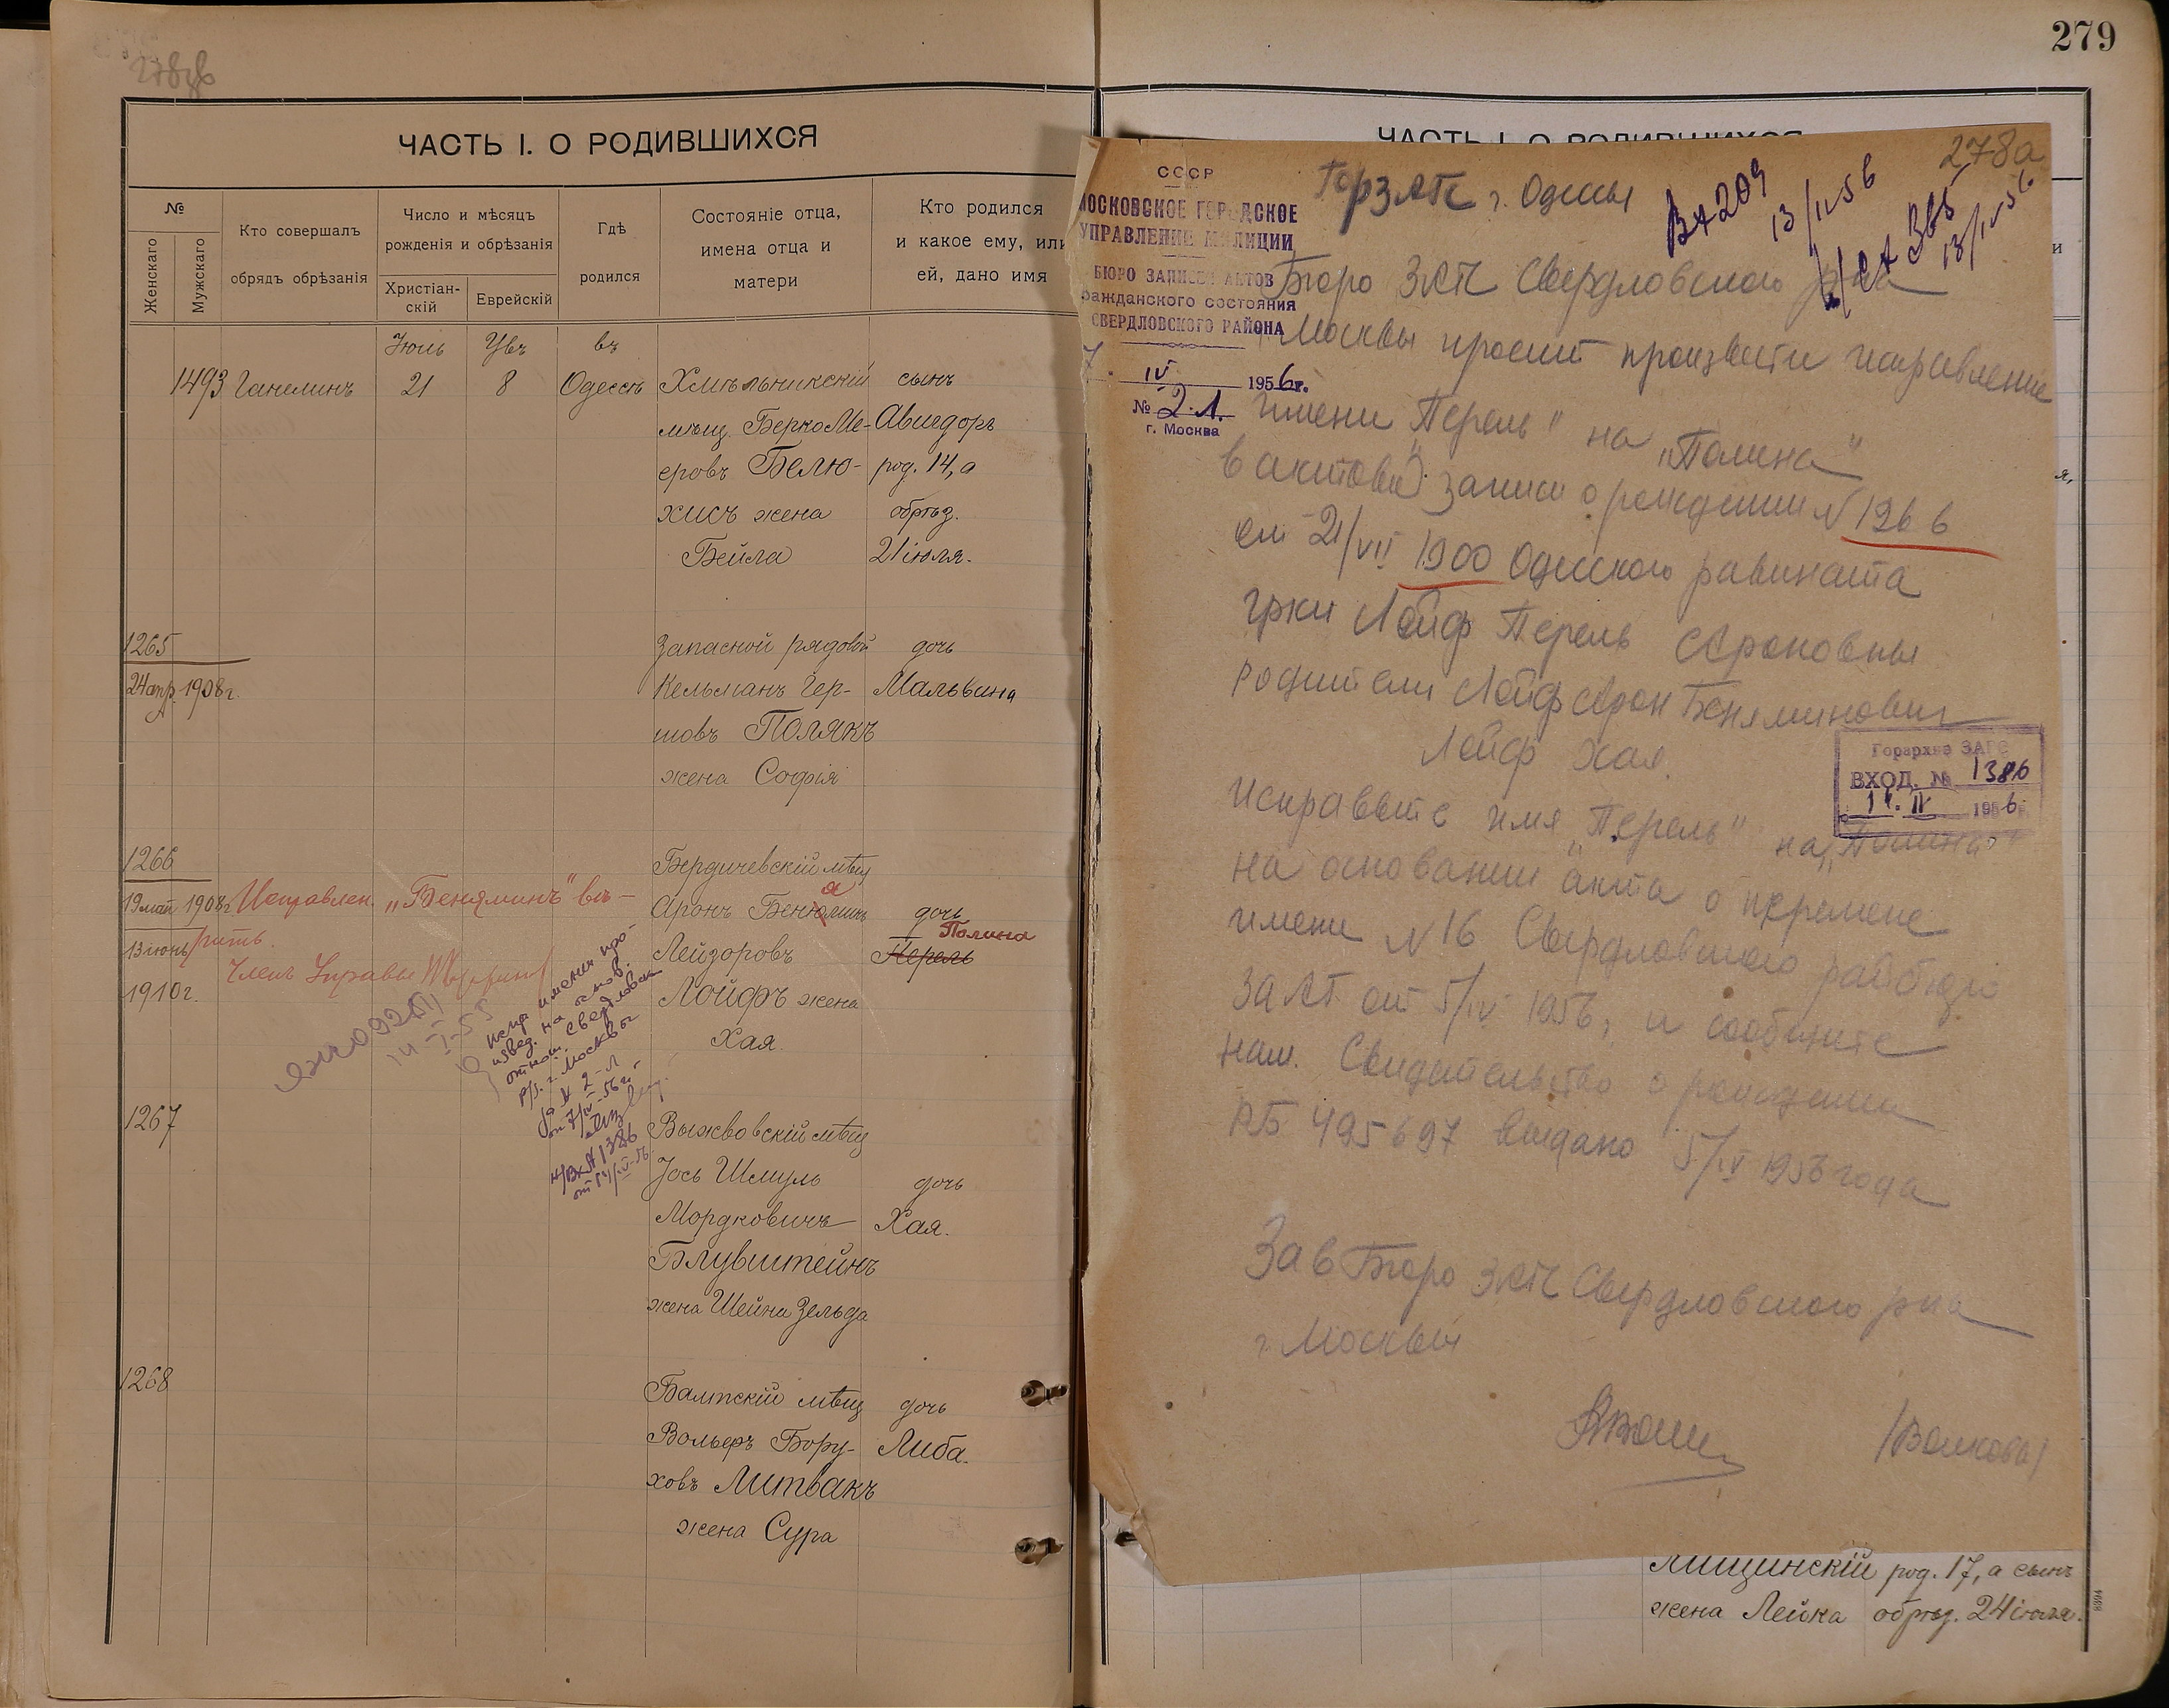 278об
ЧАСТЬ I. О РОДИВШИХСЯ
№
Женскаго
Мужскаго
Кто совершалъ
обрядъ обрѣзанія
Число и мѣсяцъ
рожденія и обрѣзанія
Христіан-
скій
Еврейскій
Гдѣ
родился
Состояніе отца,
имена отца и
матери
Кто родился
и какое ему, или
ей, дано имя
Іюль
въ
1493 Ганелинъ 21 8 Одессѣ Хмѣльникскій сынъ
мѣщ. Берко Ме- Авигдоръ
еровъ Белю- род. 14, а
хисъ жена обрѣз.
Бейла 21 іюля.
1265 Запасной рядовой дочь
24 апр. 1908 г. Кельманъ Гер- Мальвина
шовъ Полякъ
жена Софія
1266 Бердичевскій мѣщ
19 май 1908 г. Исправлен. „Беняминъ" вѣ- Аронъ Бенюминъ дочь
я
Полина
13 іюнь рить. Лейзоровъ Перель
Членъ Управы
1910 г. Лойфъ жена
Хая
испр имени про-
извед. на основ.
отнош. Свердловск
р/б. г. Москвы
за № 2-Л
от 7/IV-56 г.
н/Вх № 1386
от 14/IV-56.
1267 Выжвовскій мѣщ
Іось Шмуль дочь
Мордковичъ Хая.
Блувштейнъ
жена Шейна Зельда
1268 Балтскій мѣщ дочь
Вольфъ Бору- Либа.
ховъ Литвакъ
жена Сура
279
ЧАСТЬ I. О РОДИВШИХСЯ
278а
СССР
МОСКОВСКОЕ ГОРОДСКОЕ
УПРАВЛЕНИЕ МИЛИЦИИ
БЮРО ЗАПИСЕЙ АКТОВ
гражданского состояния
СВЕРДЛОВСКОГО РАЙОНА
7. IV 1956 г.
№ 2.Л.
г. Москва
ГорЗАГС г. Одессы
Вх 209
13/IV 56
365
13/IV 56
Бюро ЗАГС Свердловского р-на
г. Москвы просит произвести исправление
имени „Перель" на „Полина"
в актовой записи о рождении № 1266
от 21/VII 1900 Одесского равината
гр-ки Лойф Перель Ароновны
родители Лойф Арон Беняминович
Лойф Хая.
Горархив ЗАГС
ВХОД. № 1386
14. IV 1956 г.
Исправьте имя „Перель" на „Полина"
на основании акта о перемене
имени № 16 Свердловского райбюро
ЗАГС от 5/IV 1956, и сообщите
нам. Свидетельство о рождении
495697 выдано 5/IV 1956 года
Зав Бюро ЗАГС Свердловского р-на
г. Москвы
/Волкова/
Лищинскій род. 17, а сынъ
жена Лейка обрѣз. 24 іюля.